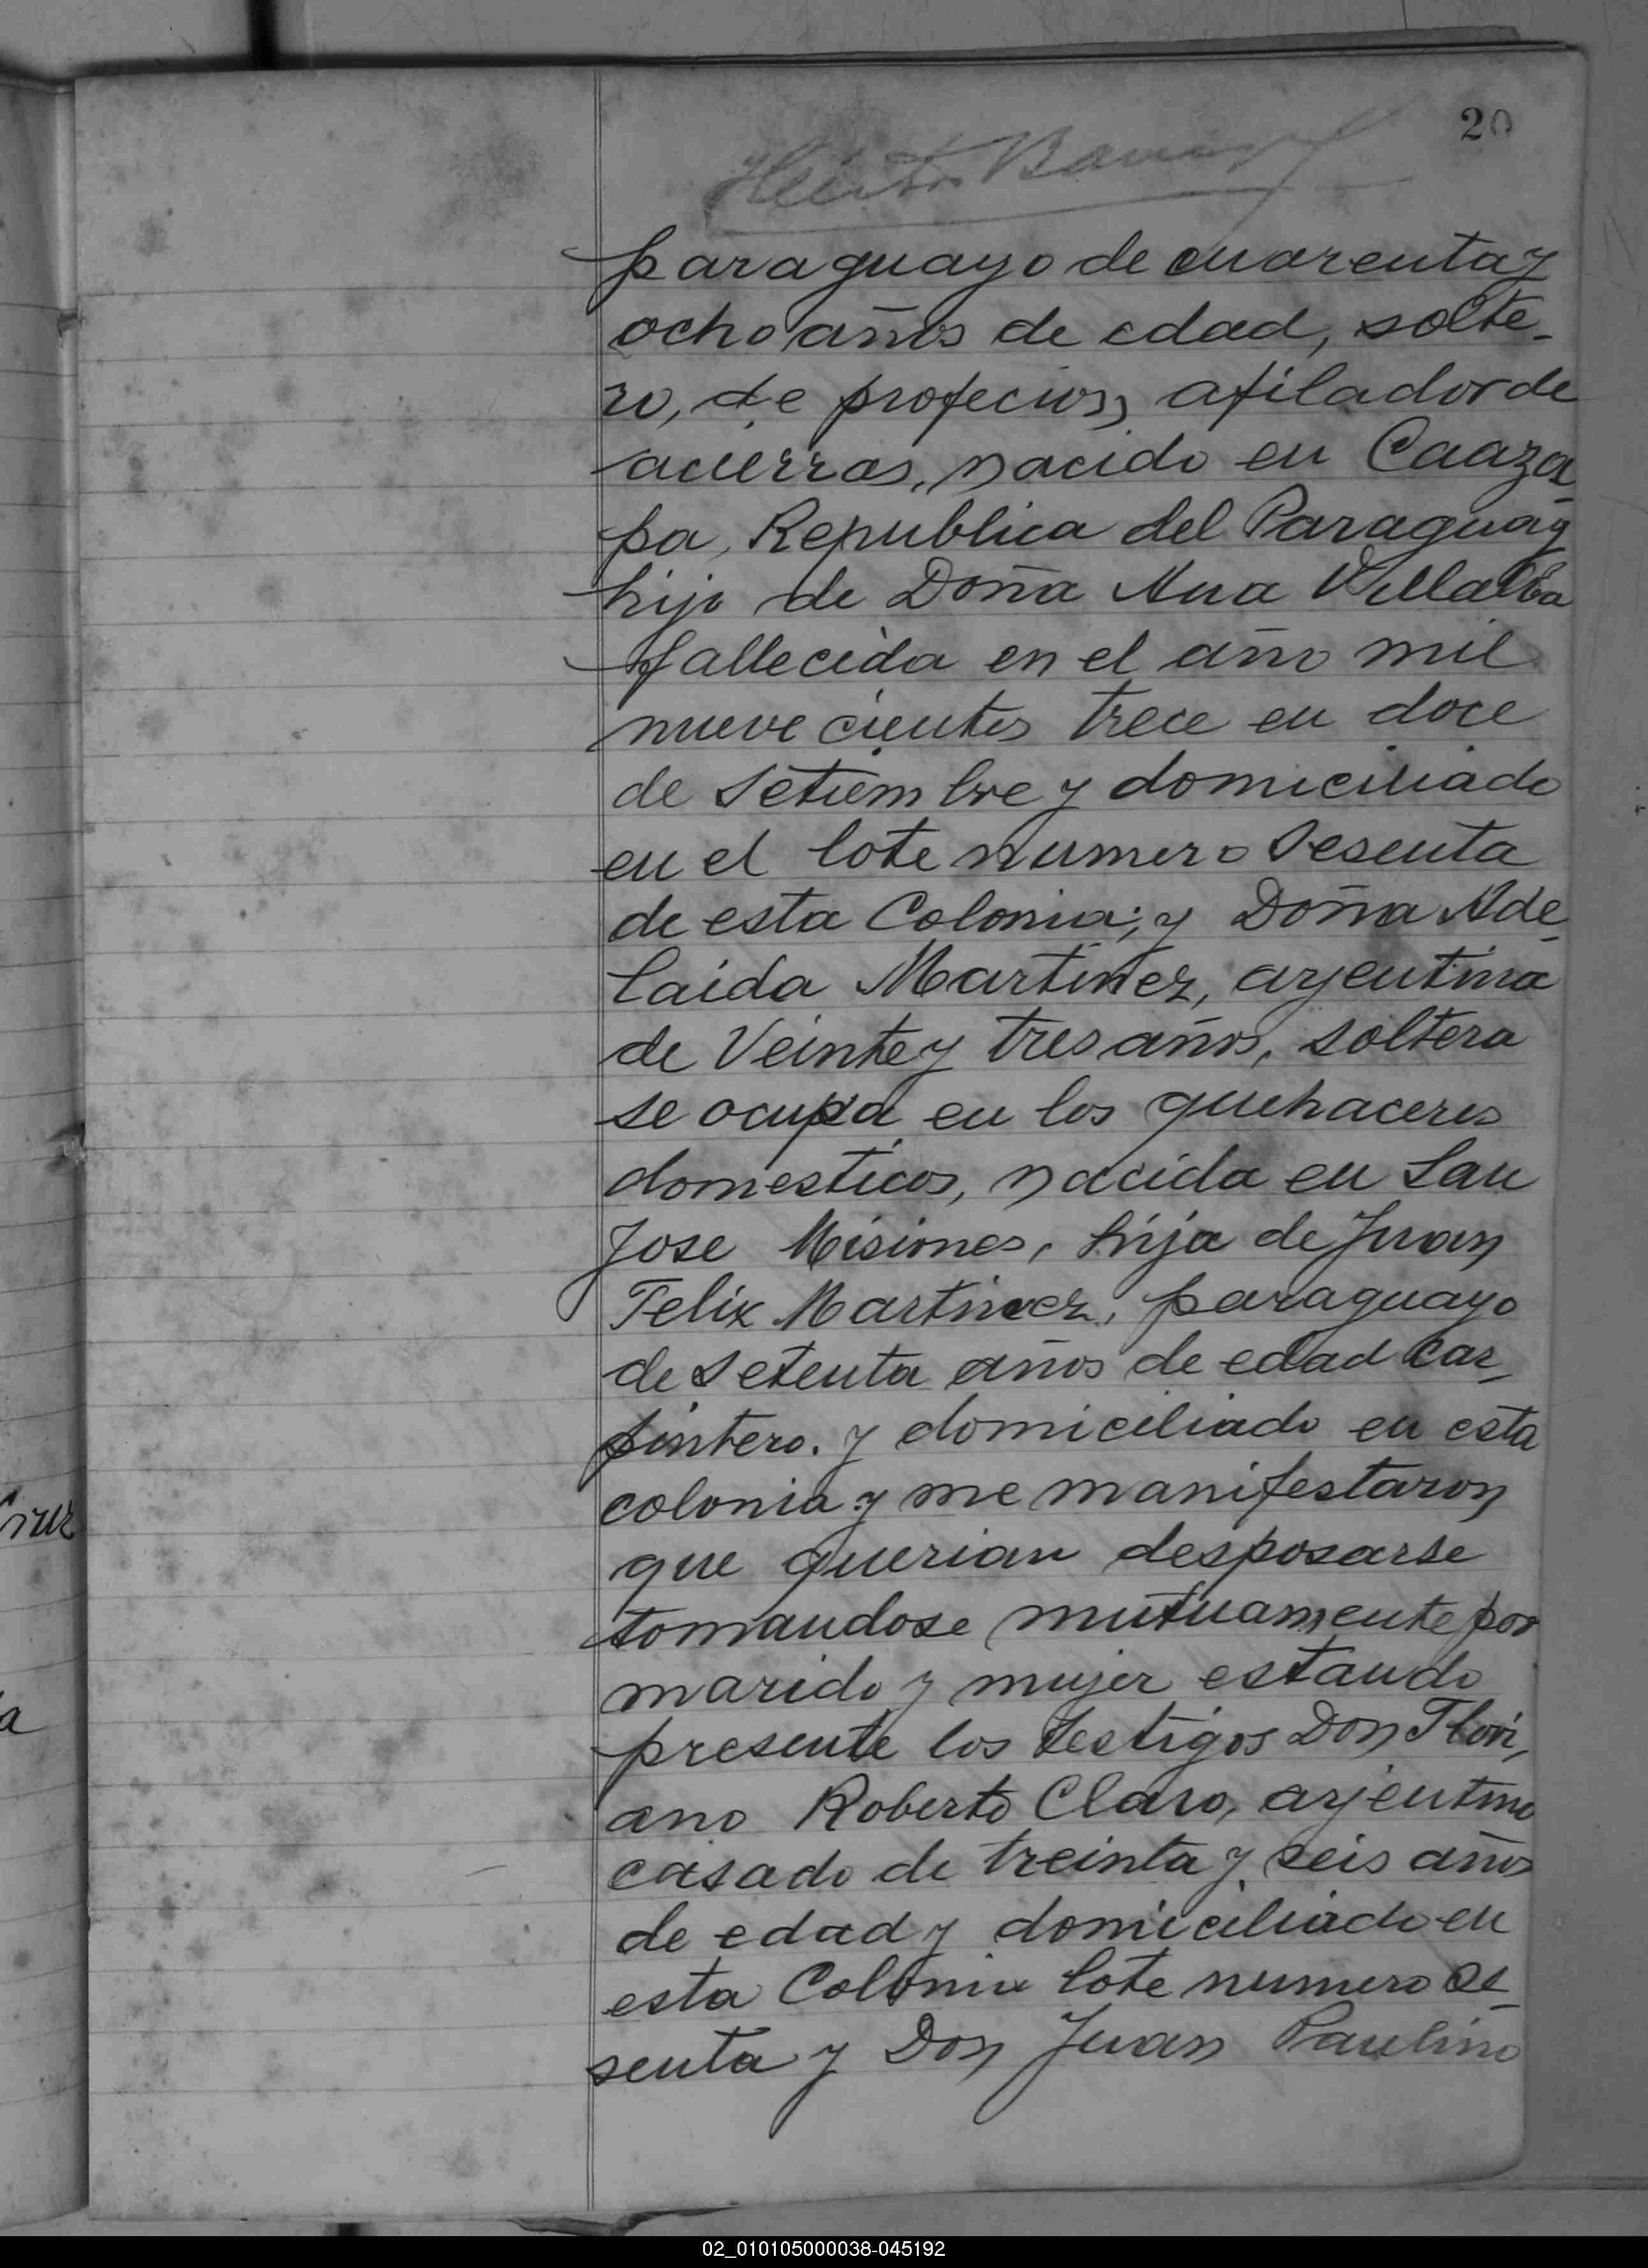 20
paraguayo de cuarenta y
ocho años de edad, solte-
ro, de profecion, afilador de
acierras, nacido en Caaza-
pa, Republica del Paraguay
hijo de Doña Ana Villalba
fallecida en el año mil
nueve cientos trece en doce
de Setiembre y domiciliado
en el lote numero Sesenta
de esta Colonia; y Doña Ade-
laida Martinez, arjentina
de Veinte y tres años, soltera
se ocupa en los quehaceres
domesticos, nacida en San
Jose Misiones, hija de Juan
Felix Martinez, paraguayo
de Setenta años de edad Car-
pintero. y domiciliado en esta
colonia y me manifestaron
que querian desposarse
tomandose mutuamente por
marido y mujer estando
presente los testigos Don Flori-
ano Roberto Claro, arjentino
casado de treinta y seis años
de edad y domiciliado en
esta Colonia lote numero Se-
senta y Don Juan Paulino
02_010105000038-045192